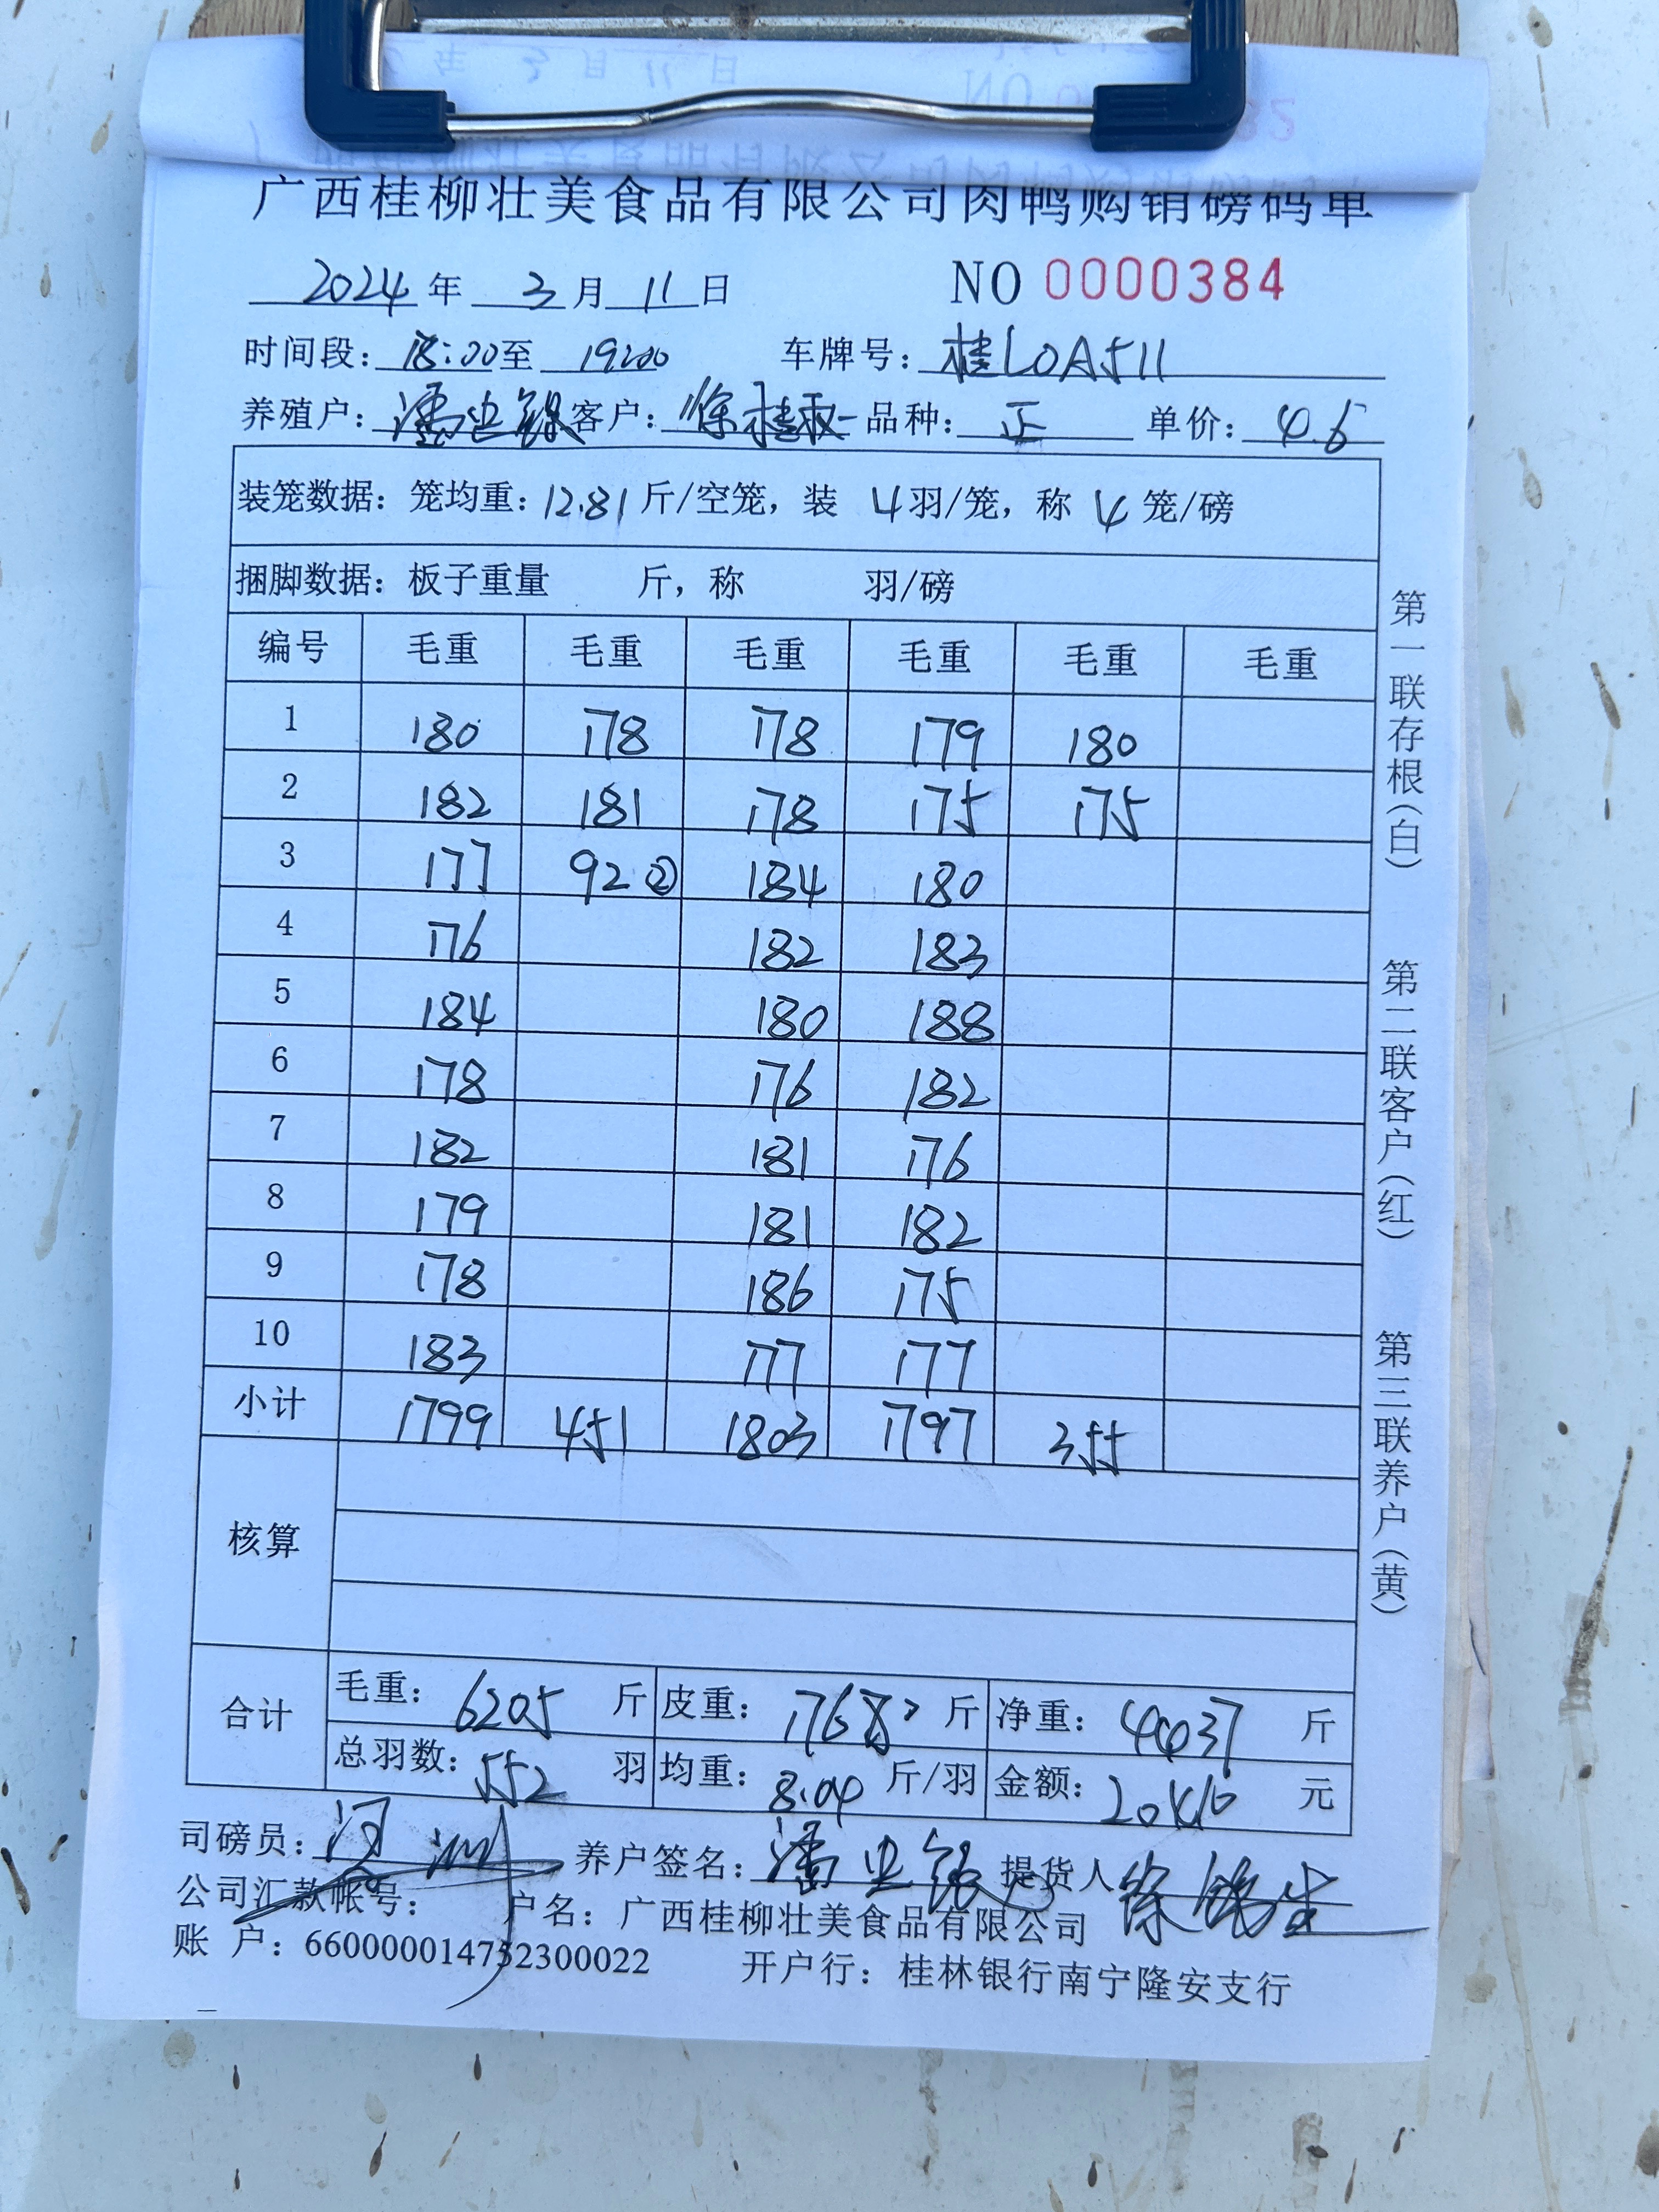 广西桂柳壮美食品有限公司肉鸭购销磅码单
2024 年 3 月 11 日 NO 0000384
时间段: 18:00 至 19:00 车牌号: 桂L0A511
养殖户: 潘业银 客户: 徐桂 品种: 正 单价: 4.6
装笼数据: 笼均重: 12.81 斤/空笼, 装 4 羽/笼, 称 4 笼/磅
捆脚数据: 板子重量 斤, 称 羽/磅
编号 毛重 毛重 毛重 毛重 毛重 毛重
1 180 178 178 179 180
2 182 181 178 175 175
3 177 92② 184 180
4 176 182 183
5 184 180 188
6 178 176 182
7 182 181 176
8 179 181 182
9 178 186 175
10 183 177 177
小计 1799 451 1803 1797 355
核算
合计
毛重: 6205 斤 皮重: 斤 净重: 4437 斤
总羽数: 552 羽 均重: 8.04 斤/羽 金额: 20410 元
司磅员: 养户签名: 潘业银 提货人 徐
公司汇款帐号: 户名: 广西桂柳壮美食品有限公司
账 户: 660000014752300022 开户行: 桂林银行南宁隆安支行
第一联存根(白) 第二联客户(红) 第三联养户(黄)